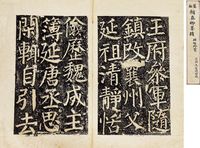 王府參軍隨
鎮故襄州父
延祖清靜恬
儉歷魏成主
簿延唐丞思
閑輒自引去